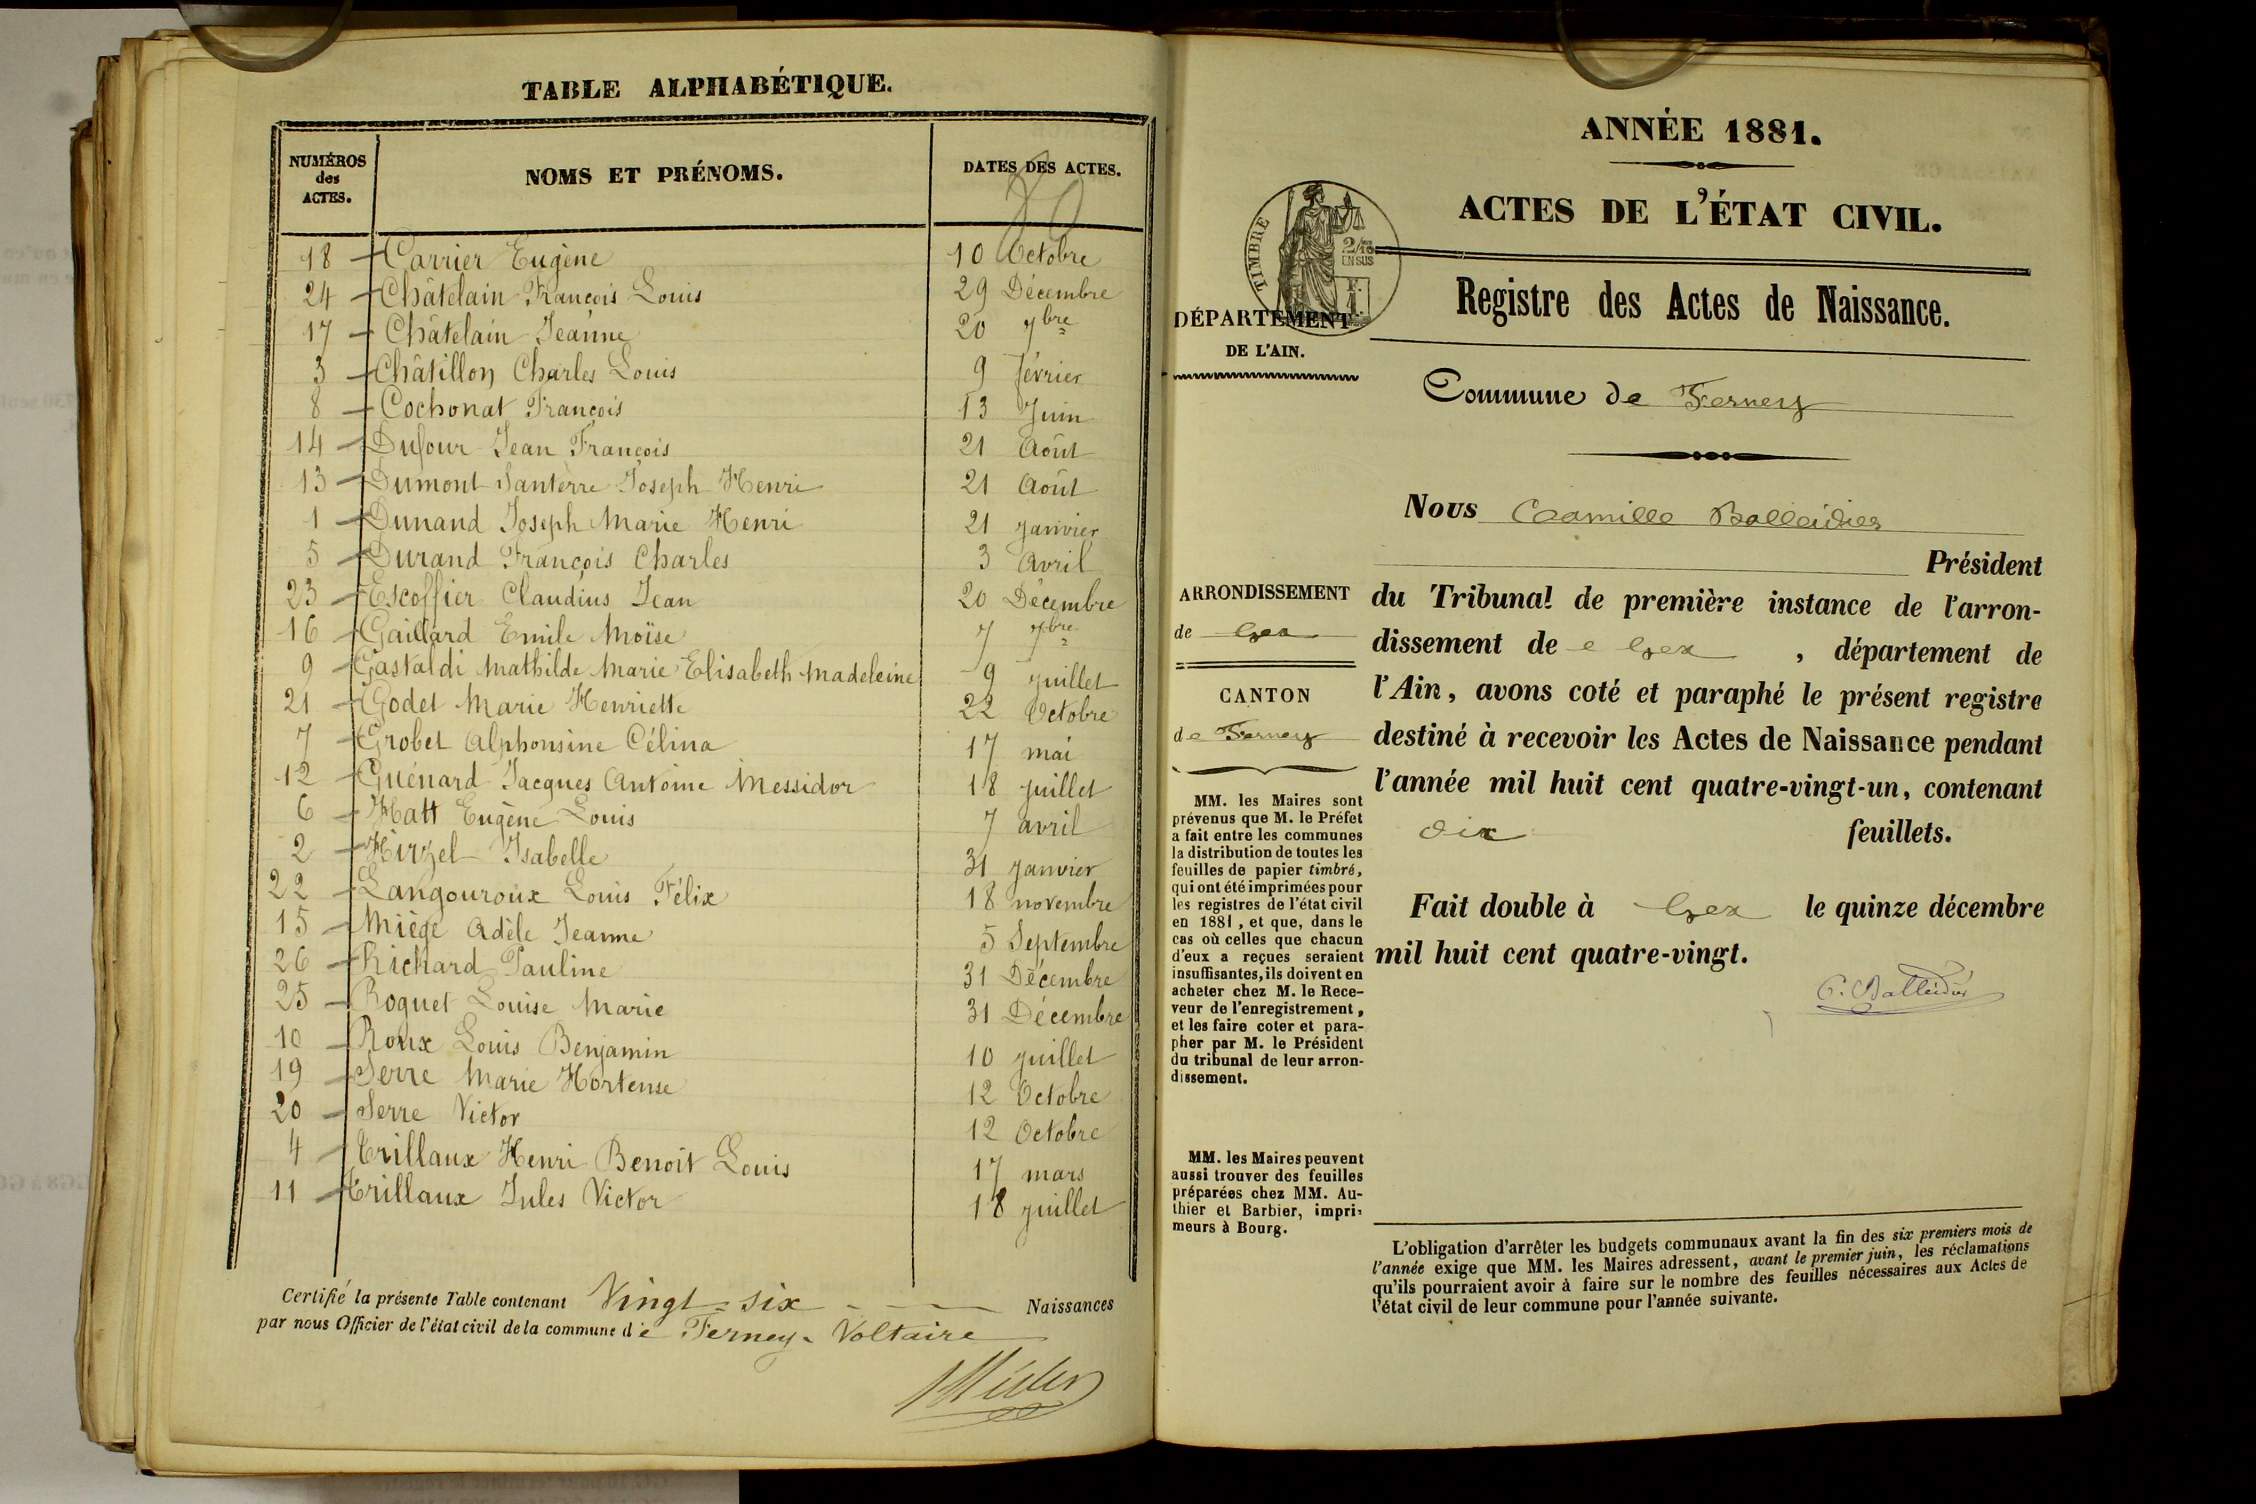 TABLE ALPHABÉTIQUE.
NUMÉROS des ACTES. NOMS ET PRÉNOMS. DATES DES ACTES.
18 Carrier Eugène 10 Octobre
24 Châtelain François Louis 29 Décembre
17 Châtelain Jeanne 20 7bre
3 Châtillon Charles Louis 9 février
8 Cochonat François 13 Juin
14 Dufour Jean François 21 Août
13 Dumont Santerre Joseph Henri 21 Août
1 Dunand Joseph Marie Henri 21 janvier
5 Durand François Charles 3 Avril
23 Escoffier Claudius Jean 20 Décembre
16 Gaillard Emile Moïse 7 7bre
9 Gastaldi Mathilde Marie Elisabeth Madeleine 9 juillet
21 Godet Marie Henriette 22 Octobre
7 Grobet Alphonsine Célina 17 mai
12 Guénard Jacques Antoine Messidor 18 juillet
6 Hatt Eugène Louis 7 avril
2 Hirzel Isabelle 31 janvier
22 Langouroux Louis Félix 18 novembre
15 Miège Adèle Jeanne 5 Septembre
26 Richard Pauline 31 Décembre
25 Roguet Louise Marie 31 Décembre
10 Roux Louis Benjamin 10 juillet
19 Serre Marie Hortense 12 Octobre
20 Serre Victor 12 Octobre
4 Trillaux Henri Benoit Louis 17 mars
11 Trillaux Jules Victor 18 juillet
Certifié la présente Table contenant Vingt-six Naissances
par nous Officier de l'état civil de la commune de Ferney-Voltaire
ANNÉE 1881.
ACTES DE L'ÉTAT CIVIL.
TIMBRE
2/10
EN SUS
Registre des Actes de Naissance.
DÉPARTEMENT
DE L'AIN.
Commune de Ferney
Nous Camille Balleidier
Président
du Tribunal de première instance de l'arron-
dissement de Gex, département de
l'Ain, avons coté et paraphé le présent registre
destiné à recevoir les Actes de Naissance pendant
l'année mil huit cent quatre-vingt-un, contenant
dix feuillets.
Fait double à Gex le quinze décembre
mil huit cent quatre-vingt.
C. Balleidier
ARRONDISSEMENT
de Gex
CANTON
de Ferney
MM. les Maires sont
prévenus que M. le Préfet
a fait entre les communes
la distribution de toutes les
feuilles de papier timbré,
qui ont été imprimées pour
les registres de l'état civil
en 1881, et que, dans le
cas où celles que chacun
d'eux a reçues seraient
insuffisantes, ils doivent en
acheter chez M. le Rece-
veur de l'enregistrement,
et les faire coter et para-
pher par M. le Président
du tribunal de leur arron-
dissement.
MM. les Maires peuvent
aussi trouver des feuilles
préparées chez MM. Au-
thier et Barbier, impri-
meurs à Bourg.
L'obligation d'arrêter les budgets communaux avant la fin des six premiers mois de
l'année exige que MM. les Maires adressent, avant le premier juin, les réclamations
qu'ils pourraient avoir à faire sur le nombre des feuilles nécessaires aux Actes de
l'état civil de leur commune pour l'année suivante.